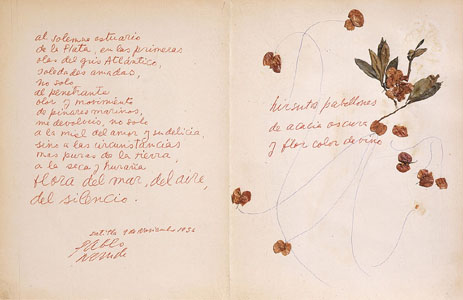 al solemne estuario
de la Plata, en las primeras
olas del gris Atlántico,
soledades amadas,
no solo
al penetrante
olor y movimiento
de pinares marinos,
me devolvió, no solo
a la miel del amor y su delicia,
sino a las circunstancias
mas puras de la tierra,
a la seca y huraña
flora del mar, del aire,
del silencio.
de 1956
Pablo
Neruda
hirsutos pabellones
de acacia oscura
y flor color de vino